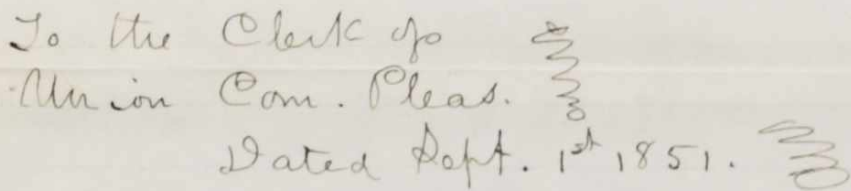 To the Clerk of
Union Com. Pleas.
Dated Sept. 1st 1851.